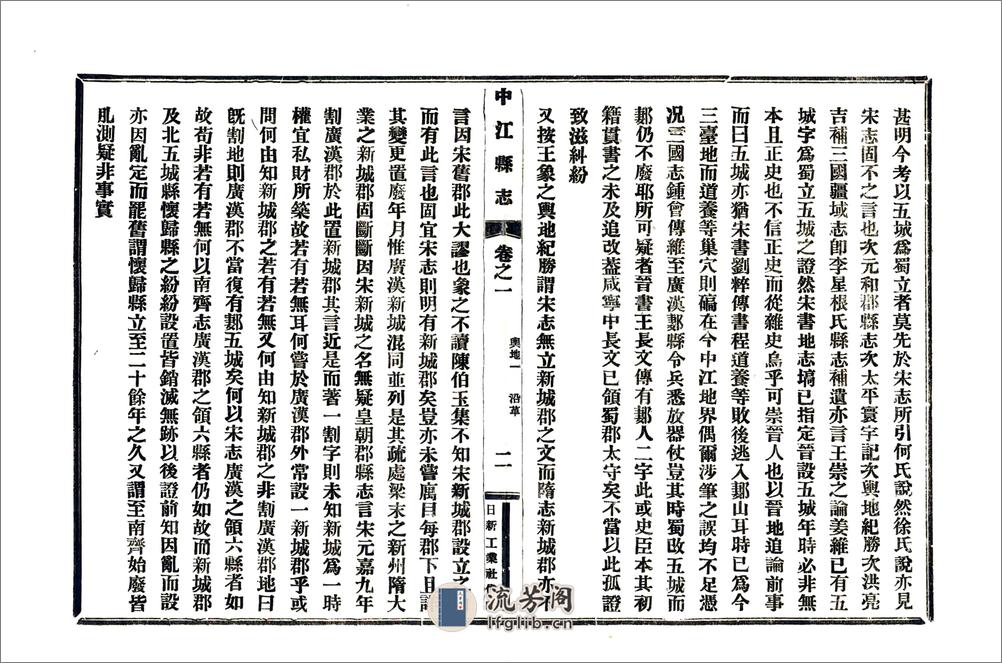 甚明今考以五城爲蜀立者莫先於宋志所引何氏說然徐氏說亦見
宋志固不之言也次元和郡縣志次太平寰宇記次輿地紀勝次洪亮
吉補三國疆域志卽李星根氏縣志補遺亦言王崇之論姜維已有五
城字爲蜀立五城之證然宋書地志塙已指定晉設五城年時必非無
本且正史也不信正史而從雜史烏乎可崇晉人也以晉地追論前事
而曰五城亦猶朱書劉粹傳書程道養等敗後逃入郪山耳時已爲今
三臺地而道養等巢穴則碻在今中江地界偶爾涉筆之誤均不足憑
况三國志鍾會傳維至廣漢郪縣令兵悉放器仗豈其時蜀改五城而
郪仍不廢耶所可疑者晉書王長文傳有郪人二字此或史臣本其初
籍貫書之未及追改葢咸寧中長文已領蜀郡太守矣不當以此孤證
致滋糾紛
又按王象之輿地紀勝謂宋志無立新城郡之文而隋志新城郡亦
中江縣志
卷之一
輿地一 沿革
二
日新工業社
言因宋舊郡此大謬也象之不讀陳伯玉集不知宋新城郡設立之
而有此言也固宜宋志則明有新城郡矣豈亦未嘗寓目每郡下且詳
其變更置廢年月惟廣漢新城混同並列是其疏處梁末之新州隋大
業之新城郡固斷斷因宋新城之名無疑皇朝郡縣志言宋元嘉九年
割廣漢郡於此置新城郡其言近是而著一割字則未知新城爲一時
權宜私財所築故若有若無耳何嘗於廣漢郡外常設一新城郡乎或
問何由知新城郡之若有若無又何由知新城郡之非割廣漢郡地曰
旣割地則廣漢郡不當復有郪五城矣何以宋志廣漢之領六縣者如
故苟非若有若無何以南齊志廣漢郡之領六縣者仍如故而新城郡
及北五城縣懷歸縣之紛紛設置皆銷滅無跡以後證前知因亂而設
亦因亂定而罷舊謂懷歸縣立至二十餘年之久又謂至南齊始廢皆
肊測疑非事實
流芳阁
lfglib.cn